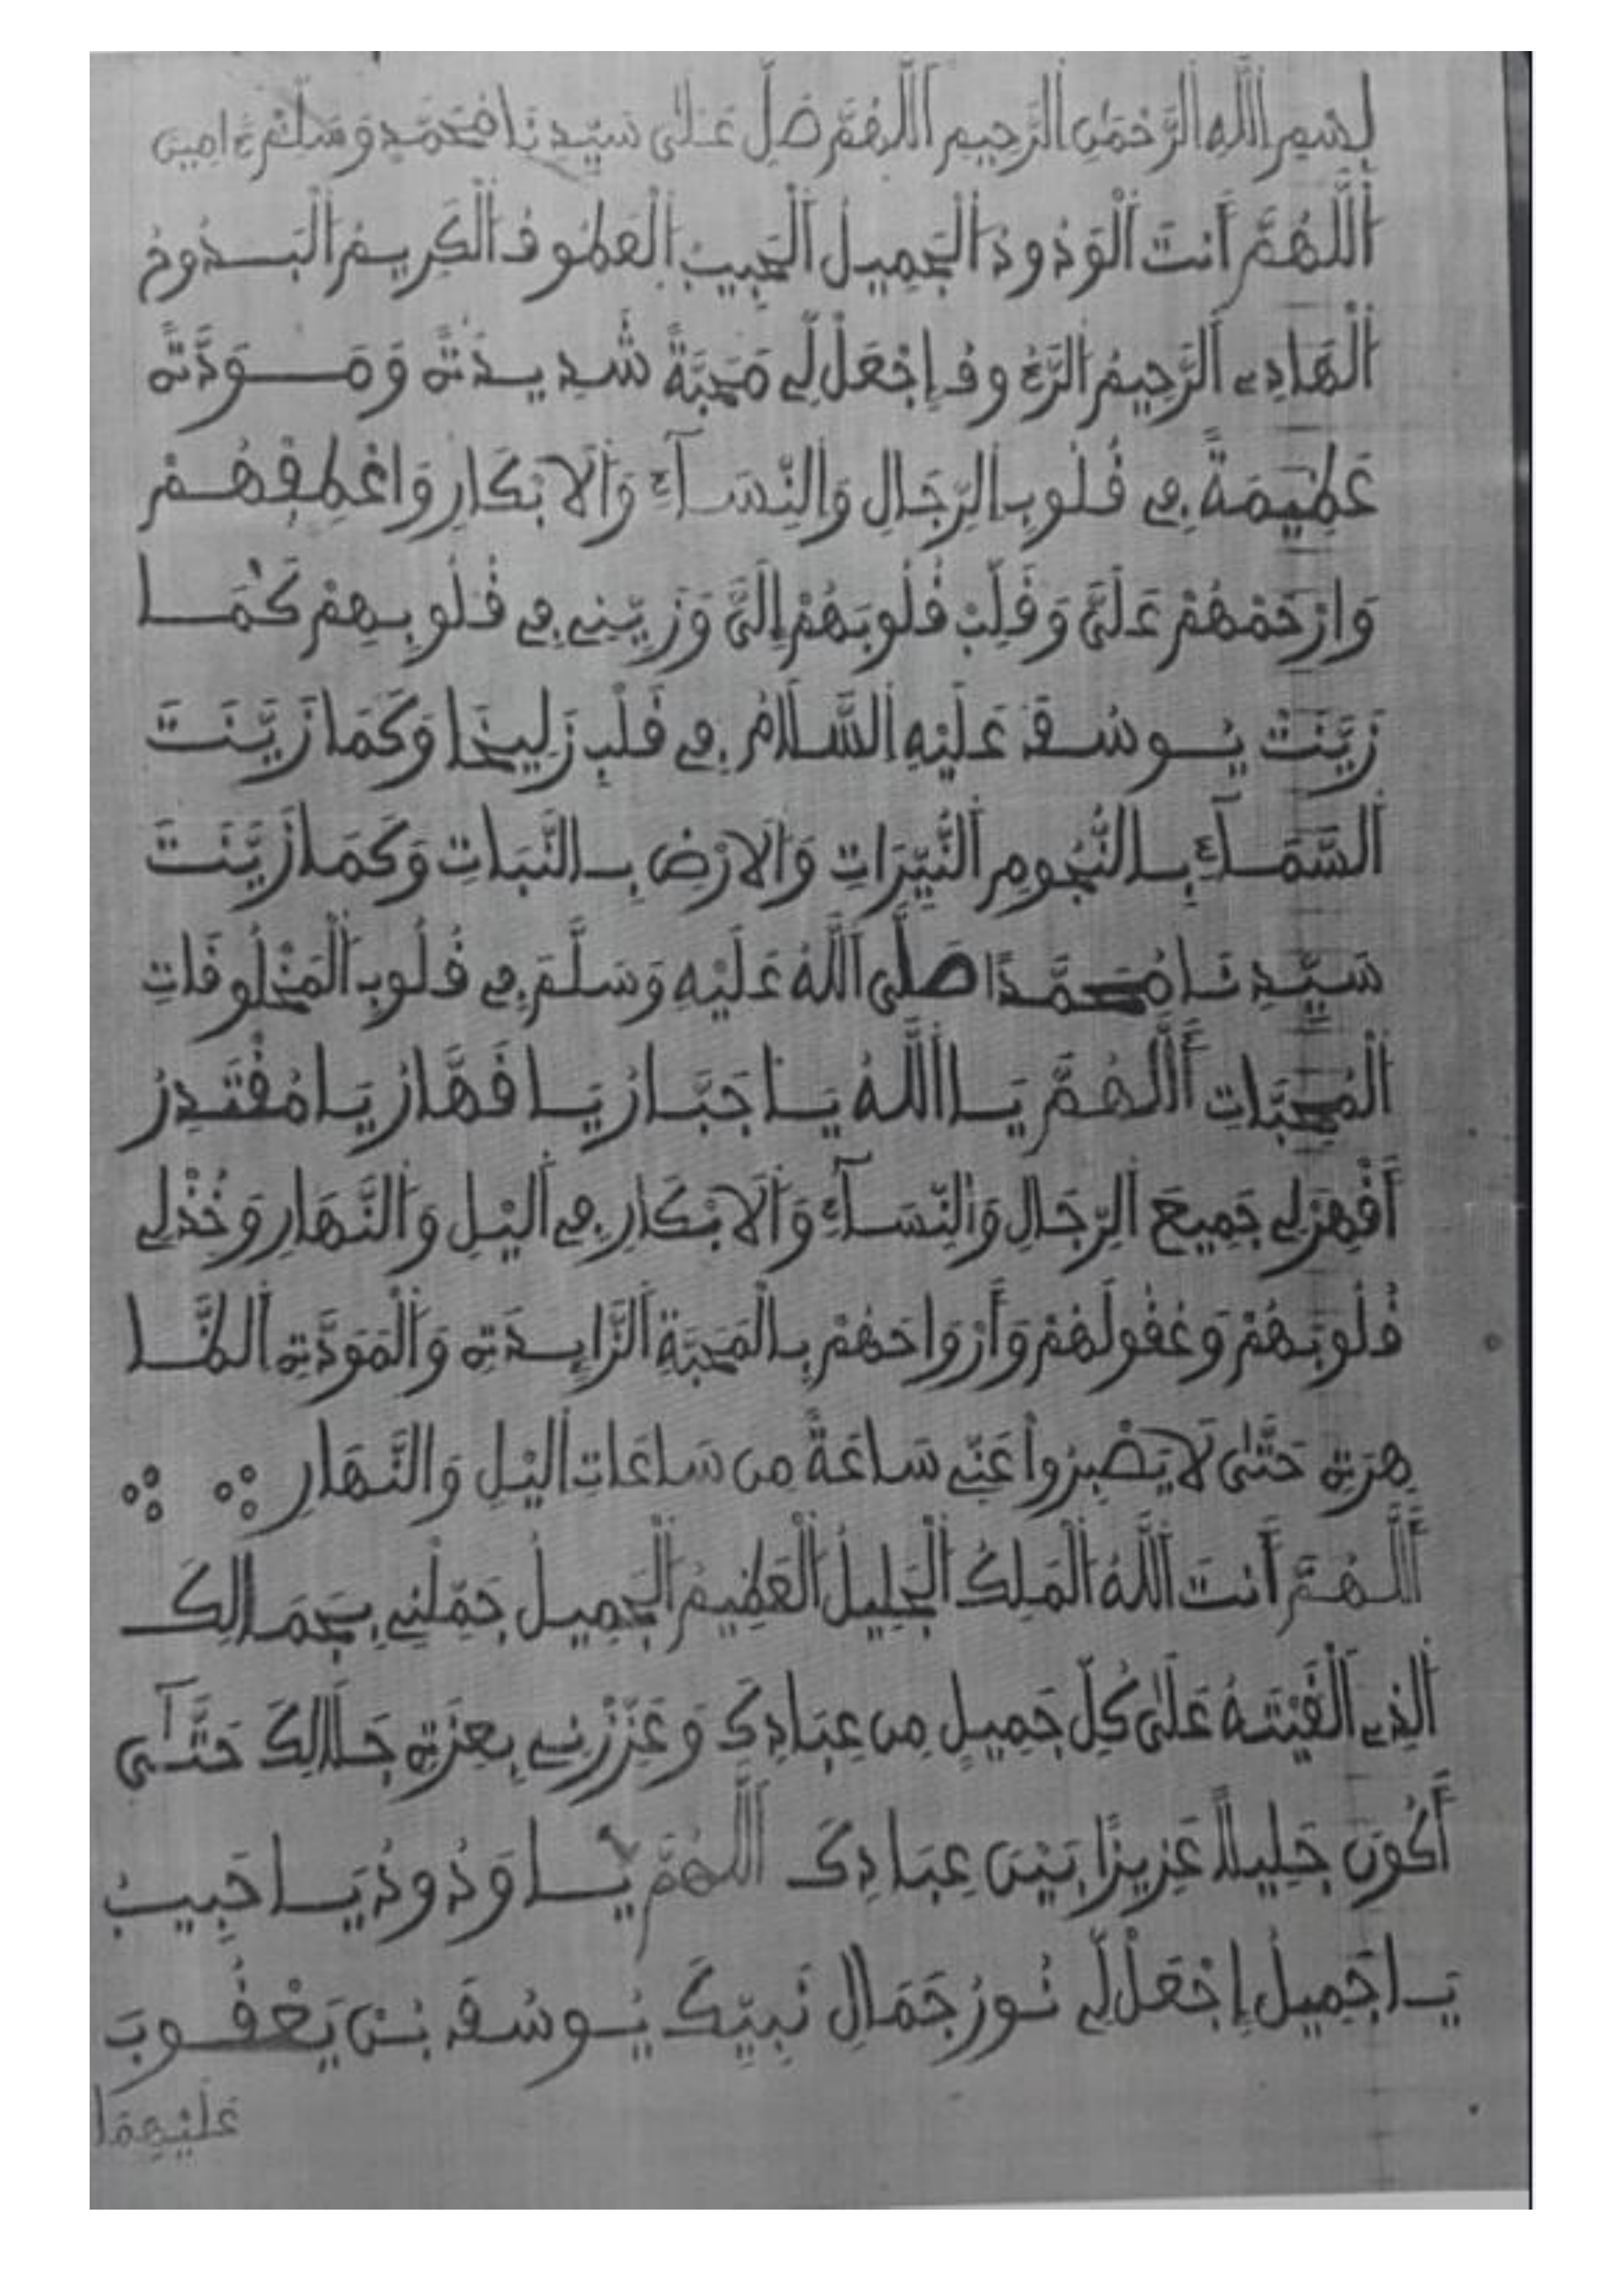 بِسْمِ اللَّهِ الرَّحْمَٰنِ الرَّحِيمِ اللَّهُمَّ صَلِّ عَلَىٰ سَيِّدِنَا مُحَمَّدٍ وَسَلِّمْ ءَامِين
اَللَّهُمَّ أَنتَ الْوَدُودُ الْجَمِيلُ الْحَبِيبُ الْعَطُوفُ الْكَرِيمُ الْبَدُوحُ
الْهَادِے الرَّحِيمُ الرَّءُوفُ إِجْعَلْ لِّے مَحَبَّةً شَدِيدَةً وَمَوَدَّةً
عَظِيمَةً فِے قُلُوبِ الرِّجَالِ وَالنِّسَآءِ وَالَابْكَارِ وَاعْطِفْهُمْ
وَارْحَمْهُمْ عَلَىَّ وَقَلِّبْ قُلُوبَهُمْ إِلَىَّ وَزَيِّنِّے فِے قُلُوبِهِمْ كَمَا
زَيَّنْتَ يُوسُفَ عَلَيْهِ السَّلَامُ فِے قَلْبِ زَلِيخَا وَكَمَا زَيَّنَتَ
السَّمَآءَ بِالنُّجُومِ النَّيِّرَاتِ وَالَارْضَ بِالنَّبَاتِ وَكَمَا زَيَّنَتَ
سَيِّدِنَا مُحَمَّدًا صَلَّى اللَّهُ عَلَيْهِ وَسَلَّمَ فِے قُلُوبِ الْمَخْلُوقَاتِ
الْمُحِبَّاتِ أَللَّهُمَّ يَا اللَّهُ يَا جَبَّارُ يَا قَهَّارُ يَا مُقْتَدِرُ
أَقْهِرْ لِے جَمِيعَ الرِّجَالِ وَالنِّسَآءِ وَالَابْكَارِ فِے الَيْلِ وَالنَّهَارِ وَخُذْ لِے
قُلُوبَهُمْ وَعُقُولَهُمْ وَأَرْوَاحَهُمْ بِالْمَحَبَّةِ الزَّايِدَةِ وَالْمَوَدَّةِ الظَّا
هِرَةِ حَتَّىٰ لَا يَصْبِرُواْ عَنِّے سَاعَةً مِن سَاعَاتِ الَيْلِ وَالنَّهَارِ
أَللَّهُمَّ أَنتَ اللَّهُ الْمَلِكُ الْجَلِيلُ الْعَظِيمُ الْجَمِيلُ جَمِّلْنِے بِجَمَالِكَ
الَّذِے أَلْقَيْتَهُ عَلَىٰ كُلِّ جَمِيلٍ مِن عِبَادِكَ وَعَزِّزْنِے بِعِزَّةِ جَلَالِكَ حَتَّىٰ
أَكُونَ جَلِيلاً عَزِيزًا بَيْنَ عِبَادِكَ اَللَّهُمَّ يَا وَدُودُ يَا حَبِيبُ
يَا جَمِيلُ إِجْعَلْ لِّے نُورُ جَمَالِ نَبِيِّكَ يُوسُفَ بْنَ يَعْقُوبَ
عَلَيْهِمَا